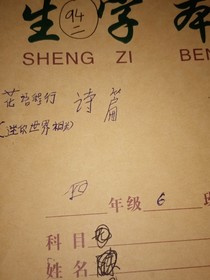 生 94 二 字 本
SHENG ZI BEN
花結游行 诗篇
(迷你世界相关)
四 年级 6 班
科目
姓名